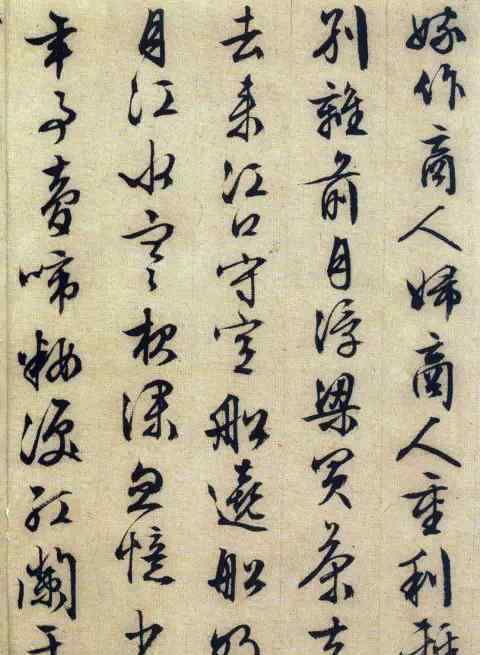 嫁作商人婦商人重利輕
别離前月浮梁買茶去
去来江口守空船遶船明
月江水寒夜深忽憶少
年事夢啼粧淚紅闌干